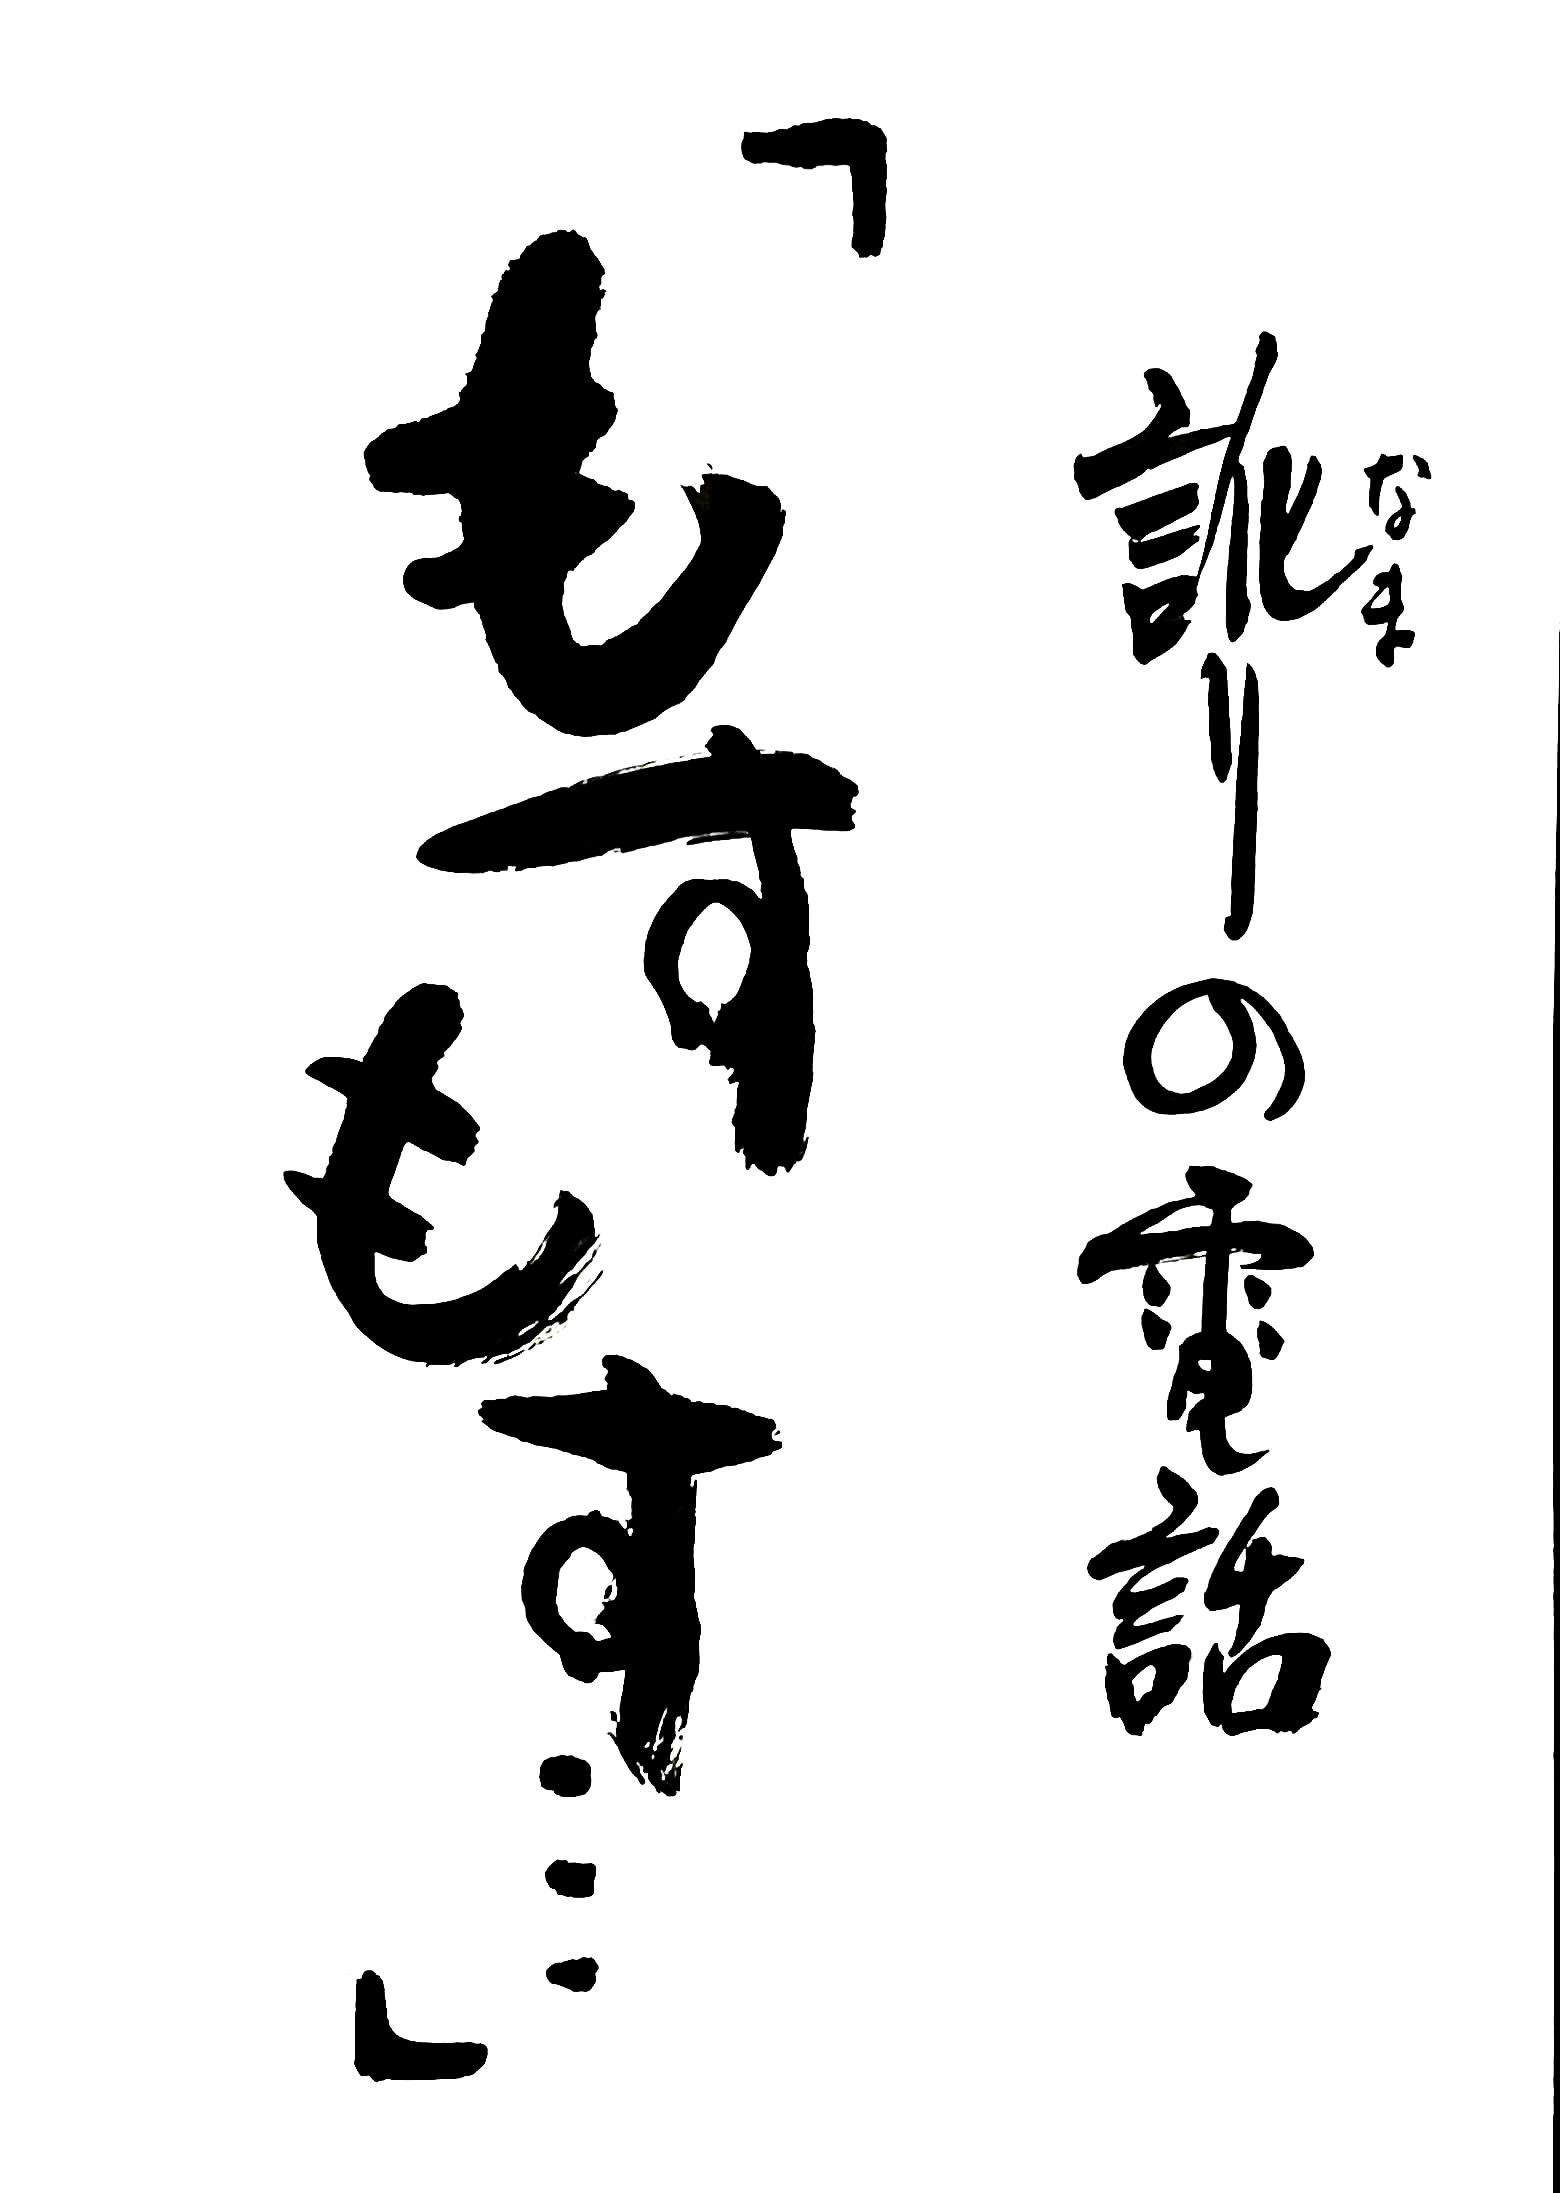 訛りの電話
なま
「もすもす…」